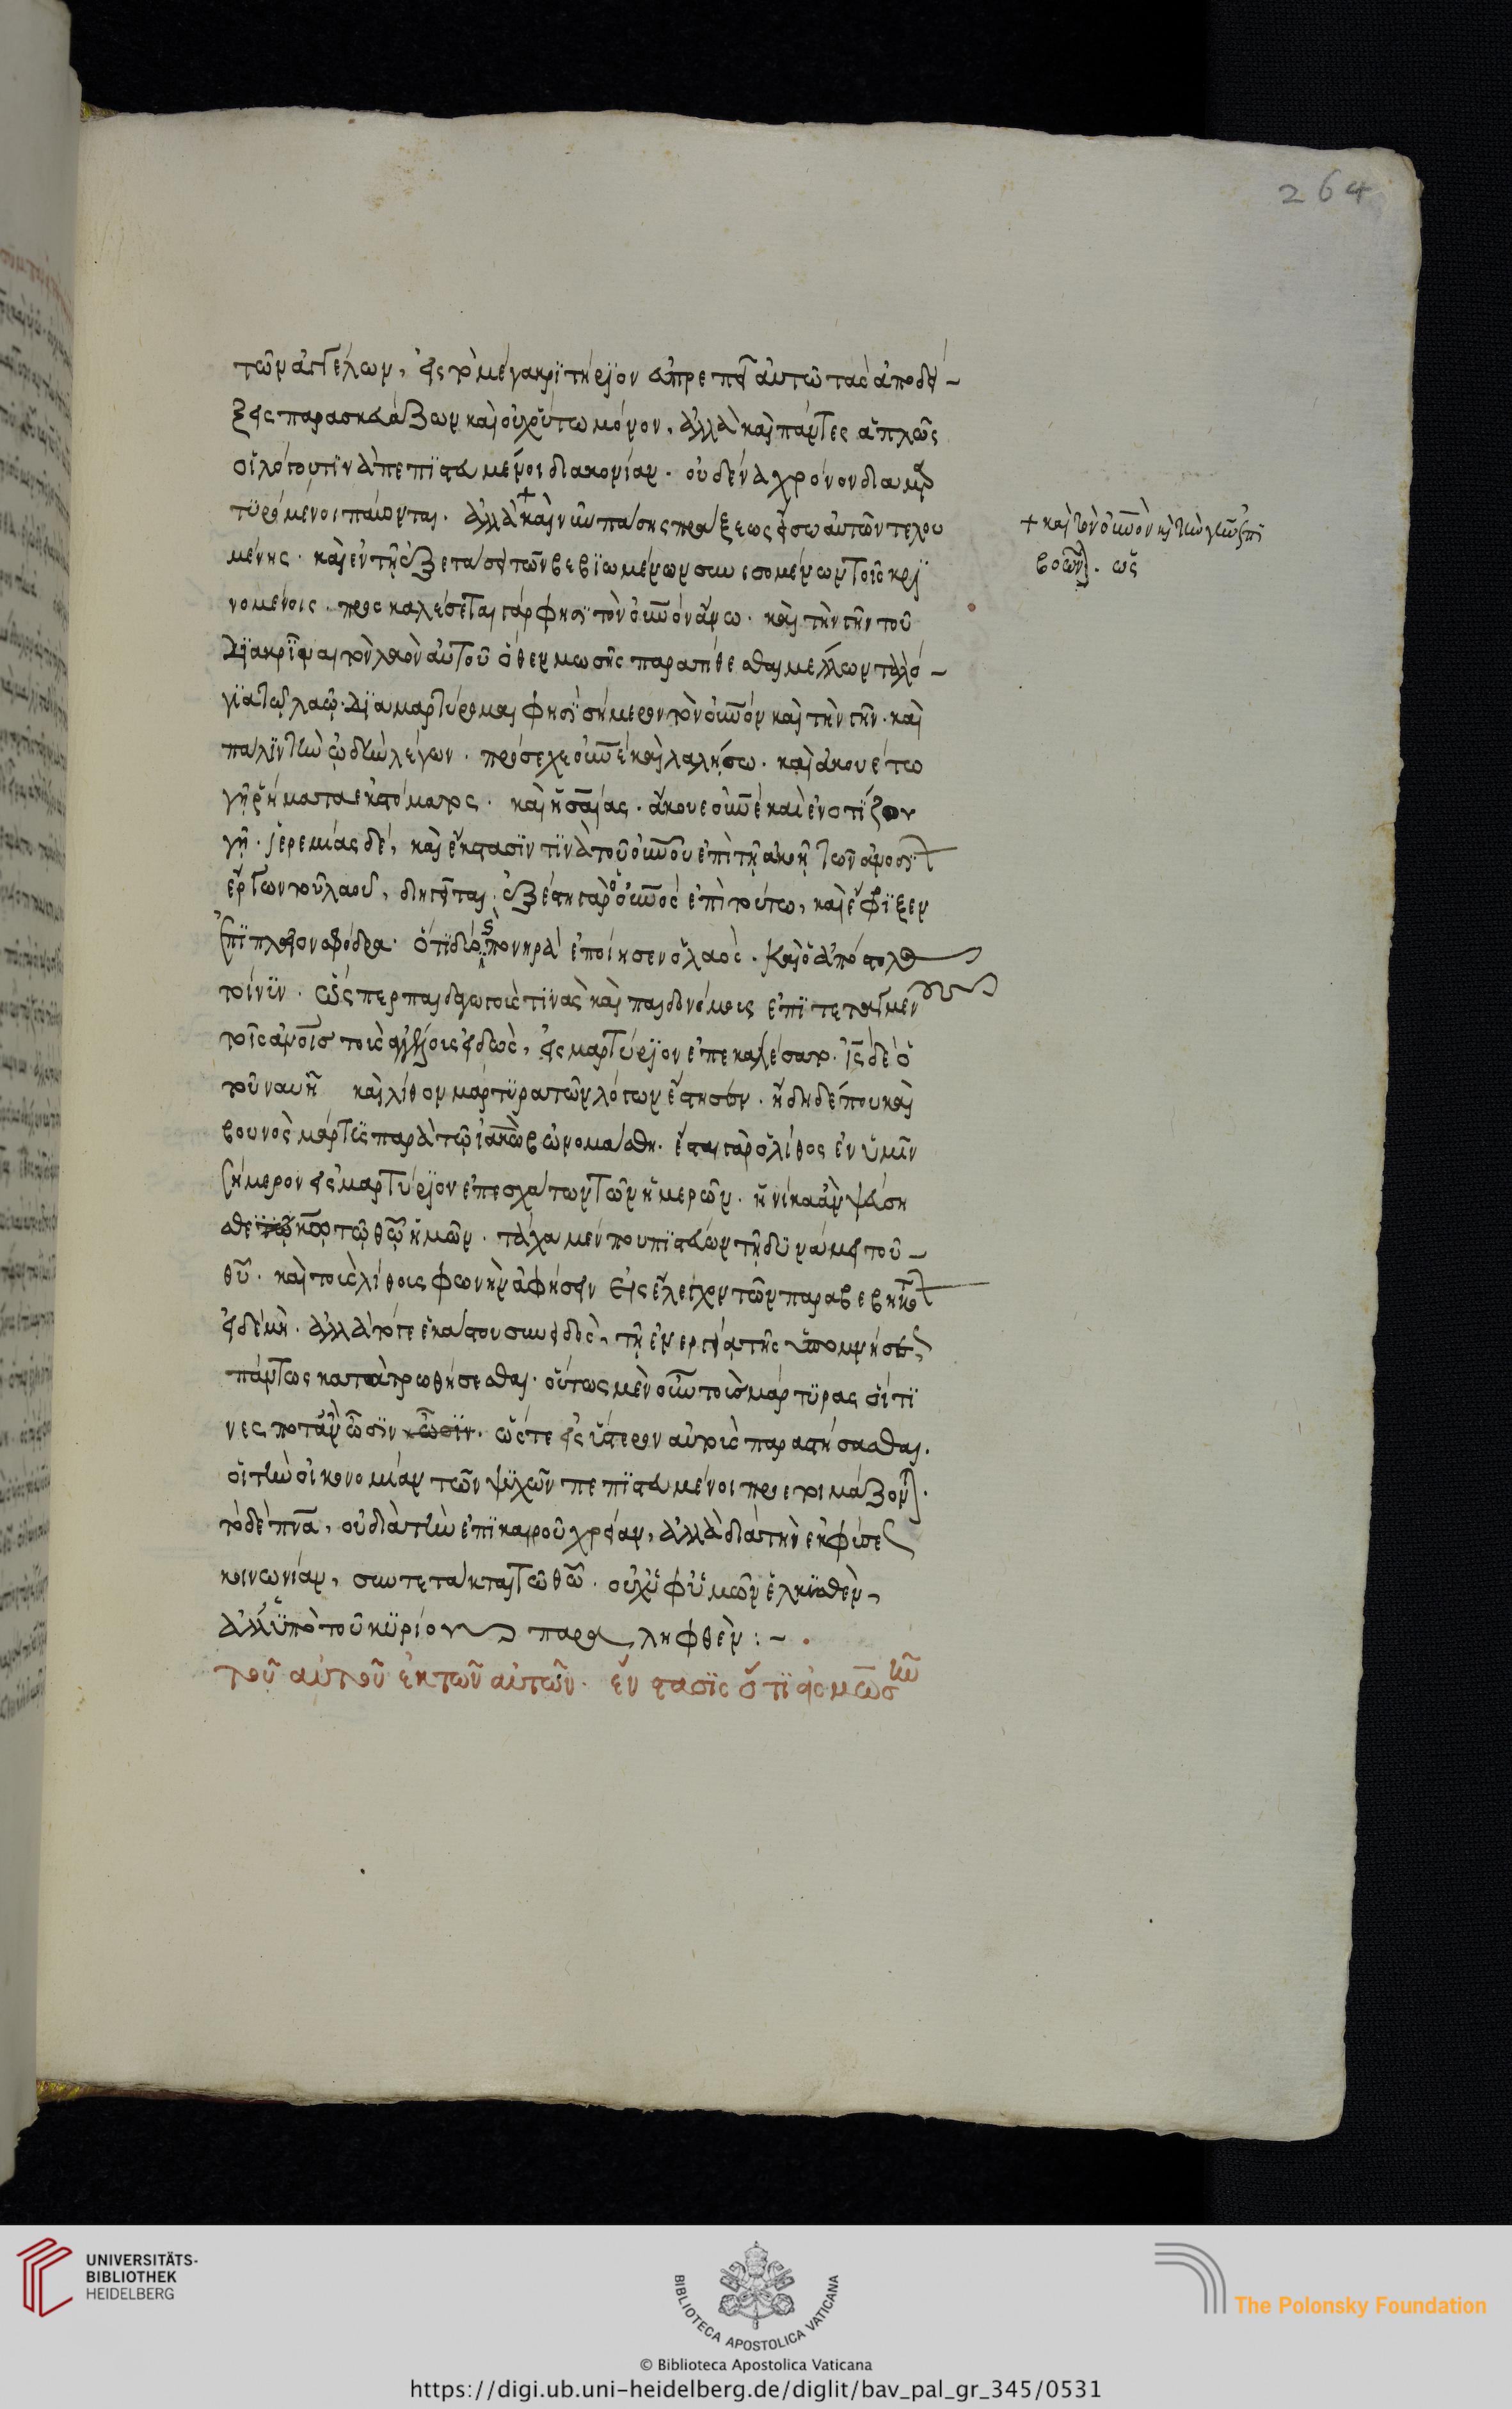 264
τῶν ἀγγέλων, εἰς τὸ μέγα κριτήριον εὐπρεπεῖ αὐτῶ τὰς ἀποδεί-
ξεις παρασκευάζων καὶ οὐχ οὕτω μόνον, ἀλλὰ καὶ πάντες ἁπλῶς
οἱ λόγου τινὰ πεπιστευμένοι διακονίαν. οὐδένα χρόνον διαμαρ
τυρόμενοι παύονται. ἀλλὰ + καὶ νῦν πάσης πράξεως εἴσω αὐτῶν τεχου
μένης. καὶ ἐν τῇ ἐξετάσει τῶν βεβιωμένων συνεσομένων τοῖς κρι
νομένοις. προσκαλέσεται γάρ φησι τὸν οὐνὸν ἄνω. καὶ τὴν γῆν τοῦ
διακρῖναι τὸν λαὸν αὐτοῦ ὅθεν μωσῆς παρατίθεσθαι μέλλων τὰ λό-
για τῷ λαῷ. διαμαρτύρομαι φησὶ σήμερον τὸν οὐνὸν καὶ τὴν γῆν. καὶ
πάλιν τὴν ὠδὴν λέγων. πρόσεχε οὐνὲ καὶ λαλήσω. καὶ ἀκουέτω
γῆ ῥήματα ἐκ στόματος. καὶ ἡσαΐας. ἄκουε οὐνὲ καὶ ἐνωτίζου
γῆ. ἱερεμίας δέ, καὶ ἔκστασίν τινὰ τοῦ οὐνοῦ ἐπὶ τῇ ἀκοῇ τῶν ἀνοσί
ἔργων τοῦ λαοῦ, διηγεῖται. ἐξέστη γὰρ ὁ οὐνὸς ἐπὶ τούτω, καὶ ἔφριξεν
ἐπιπλεῖον σφόδρα. ὅτι δύο πονηρὰ ἐποίησεν ὁ λαός. καὶ ὁ ἀπόστολο
τοίνυν. ὥσπερ παιδαγωγούς τινας καὶ παιδονόμους ἐπιτεταγμέν
τοῖς ἀνοις τοὺς ἀγγέλους εἰδώς, εἰς μαρτύριον ἐπεκαλέσατο. ις δὲ ὁ
τοῦ ναυῆ καὶ λίθον μάρτυρα τῶν λόγων ἔστησεν. ἤδη δέ που καὶ
βουνὸς μάρτυς παρὰ τῷ ἰακὼβ ὠνομάσθη. ἔσται γὰρ ὁ λίθος ἐν ὑμῖν
σήμερον εἰς μαρτύριον ἐπ ἐσχάτων τῶν ἡμερῶν. ἡνίκα ἂν ψεύση
σθε τῷ κω τῷ θῷ ἡμῶν. τάχα μέν που πιστεύων τῇ δυνάμει τοῦ-
θυ. καὶ τοὺς λίθους φωνὴν ἀφήσειν εἰς ἔλεγχον τῶν παραβεβηκότ
εἰ δὲ μή. ἀλλὰ τό γε ἑκάστου συνειδός, τῇ ἐνεργείᾳ τῆς ὑπομνήσεως
πάντως κατατρωθήσεσθαι. οὕτως μὲν οὖν τοὺς μάρτυρας οἵτι
νες ποτ᾽ ἂν ὦσιν ὦσιν. ὥστε εἰς ὕστερον αὐτοὺς παραστήσασθαι.
οἱ τὴν οἰκονομίαν τῶν ψυχῶν πεπιστευμένοι προετοιμάζουσιν.
τὸ δὲ πνα, οὐ διὰ τὴν ἐπὶ καιροῦ χρείαν, ἀλλὰ διὰ τὴν ἐκ φύσεως
κοινωνίαν, συντέτακται τῷ θῷ. οὐχ ὑφ᾽ ἡμῶν ἑλκυσθέν,
ἀλλ᾽ ὑπὸ τοῦ κυρίου παραληφθέν : -
τοῦ αὐτοῦ ἐκ τῶν αὐτῶν. ἔνστασις ὅτι εἰς μωσῆν
+ καὶ τὸν οὐνὸν καὶ τὴν γῆν ἐπι
βοῶνται. ὡς
UNIVERSITÄTS-
BIBLIOTHEK
HEIDELBERG
BIBLIOTECA APOSTOLICA VATICANA
The Polonsky Foundation
© Biblioteca Apostolica Vaticana
https://digi.ub.uni-heidelberg.de/diglit/bav_pal_gr_345/0531